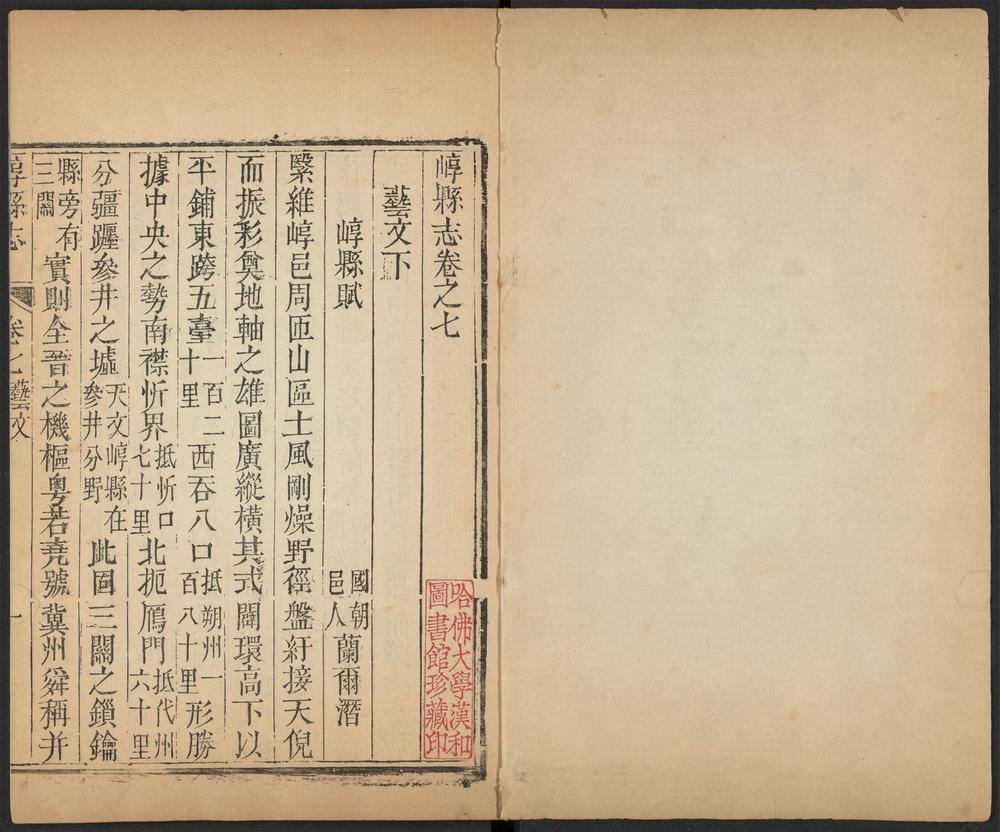 崞縣志卷之七
藝文下
崞縣賦
國朝邑人蘭爾濳
繄維崞邑周匝山區土風剛燥野徑盤紆接天倪
而振彩奠地軸之雄圖廣縱橫其式闢環高下以
平鋪東跨五臺一百二十里西吞八口抵朔州一百八十里形勝
據中央之勢南襟忻界抵忻口七十里北扼鴈門抵代州六十里
分疆躔參井之墟天文崞縣在參井分野此固三關之鎖鑰
縣旁有三關實則全晉之機樞粵若堯號冀州舜稱并
崞縣志 卷之七藝文 一
哈佛大學漢和
圖書館珍藏印